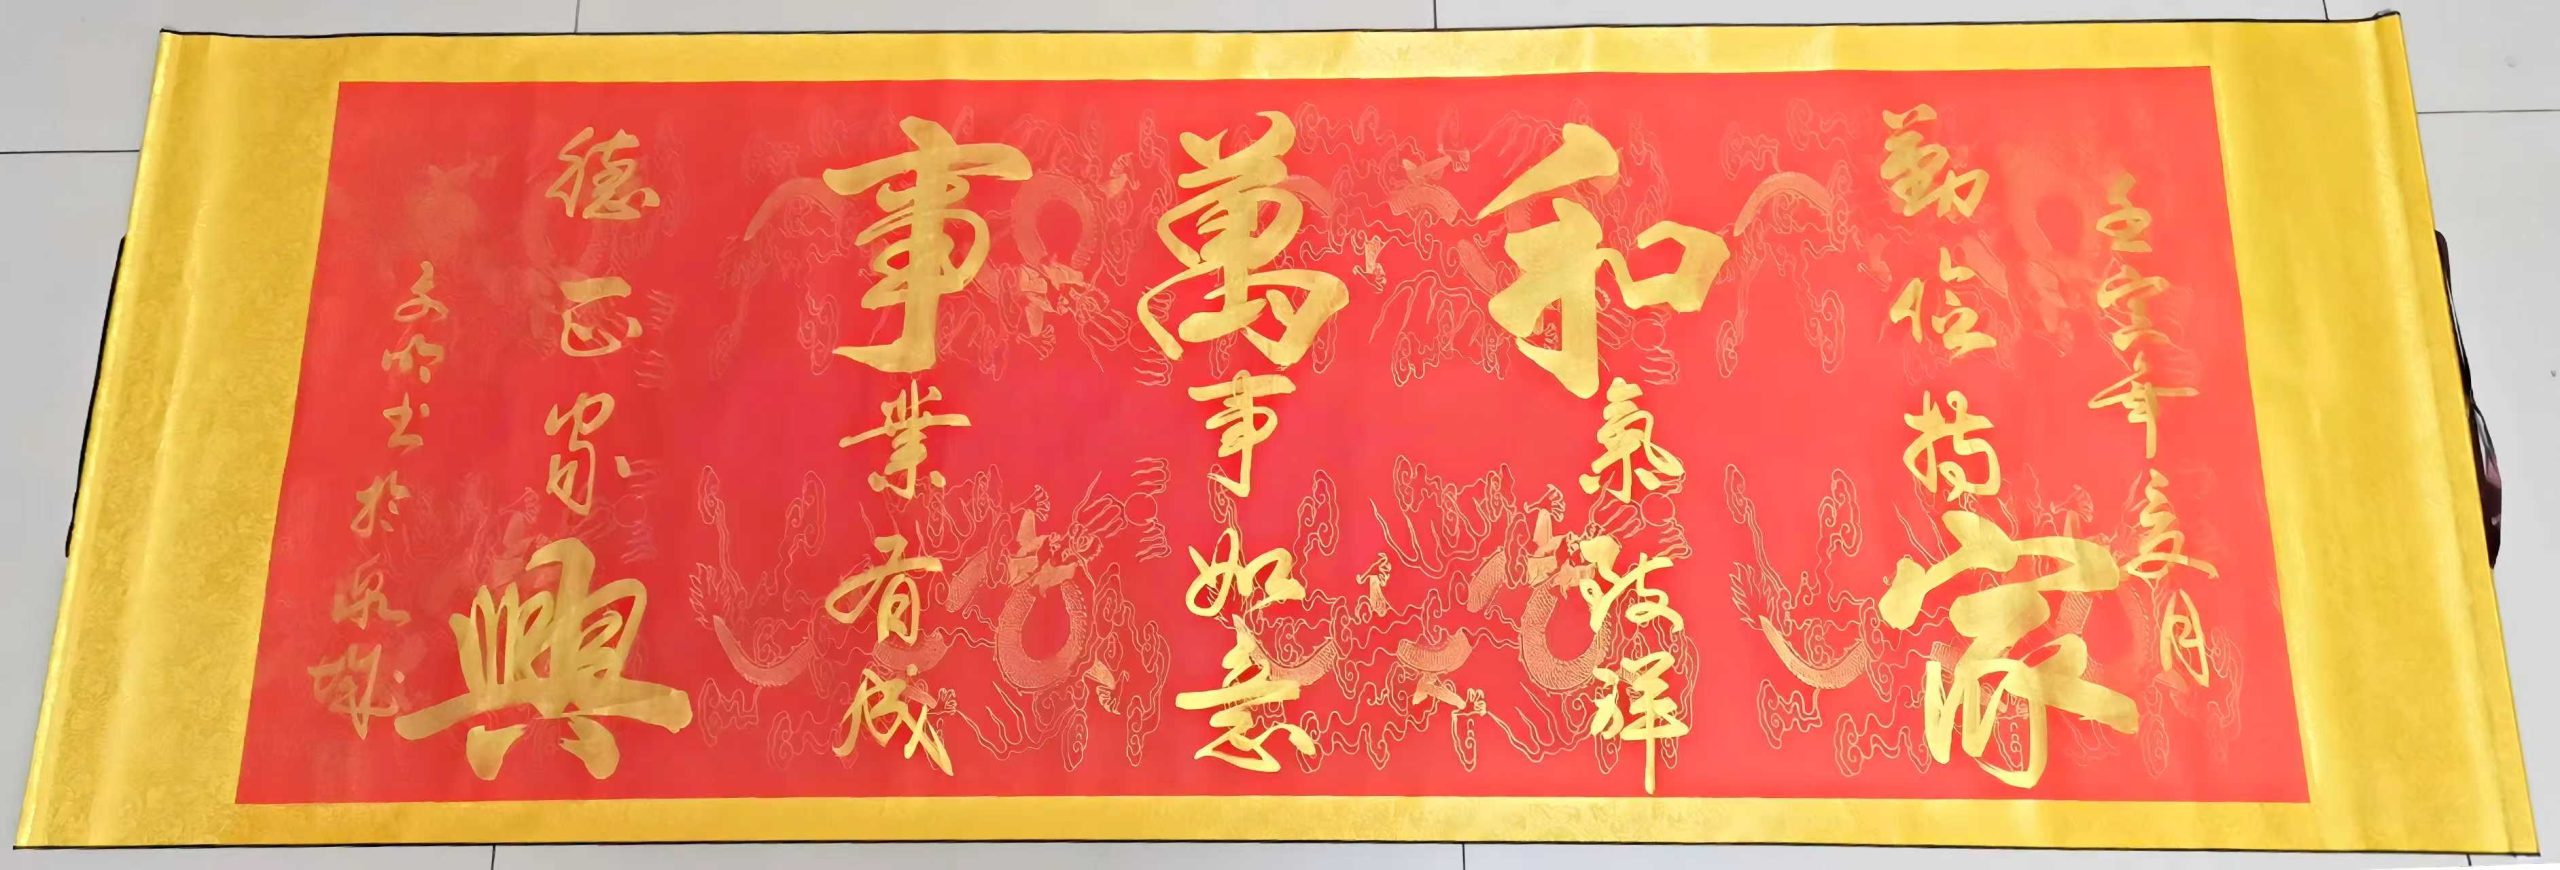 壬寅年夏月
勤儉持家
和氣致祥
萬事如意
事業有成
德正家興
文明書於泉城